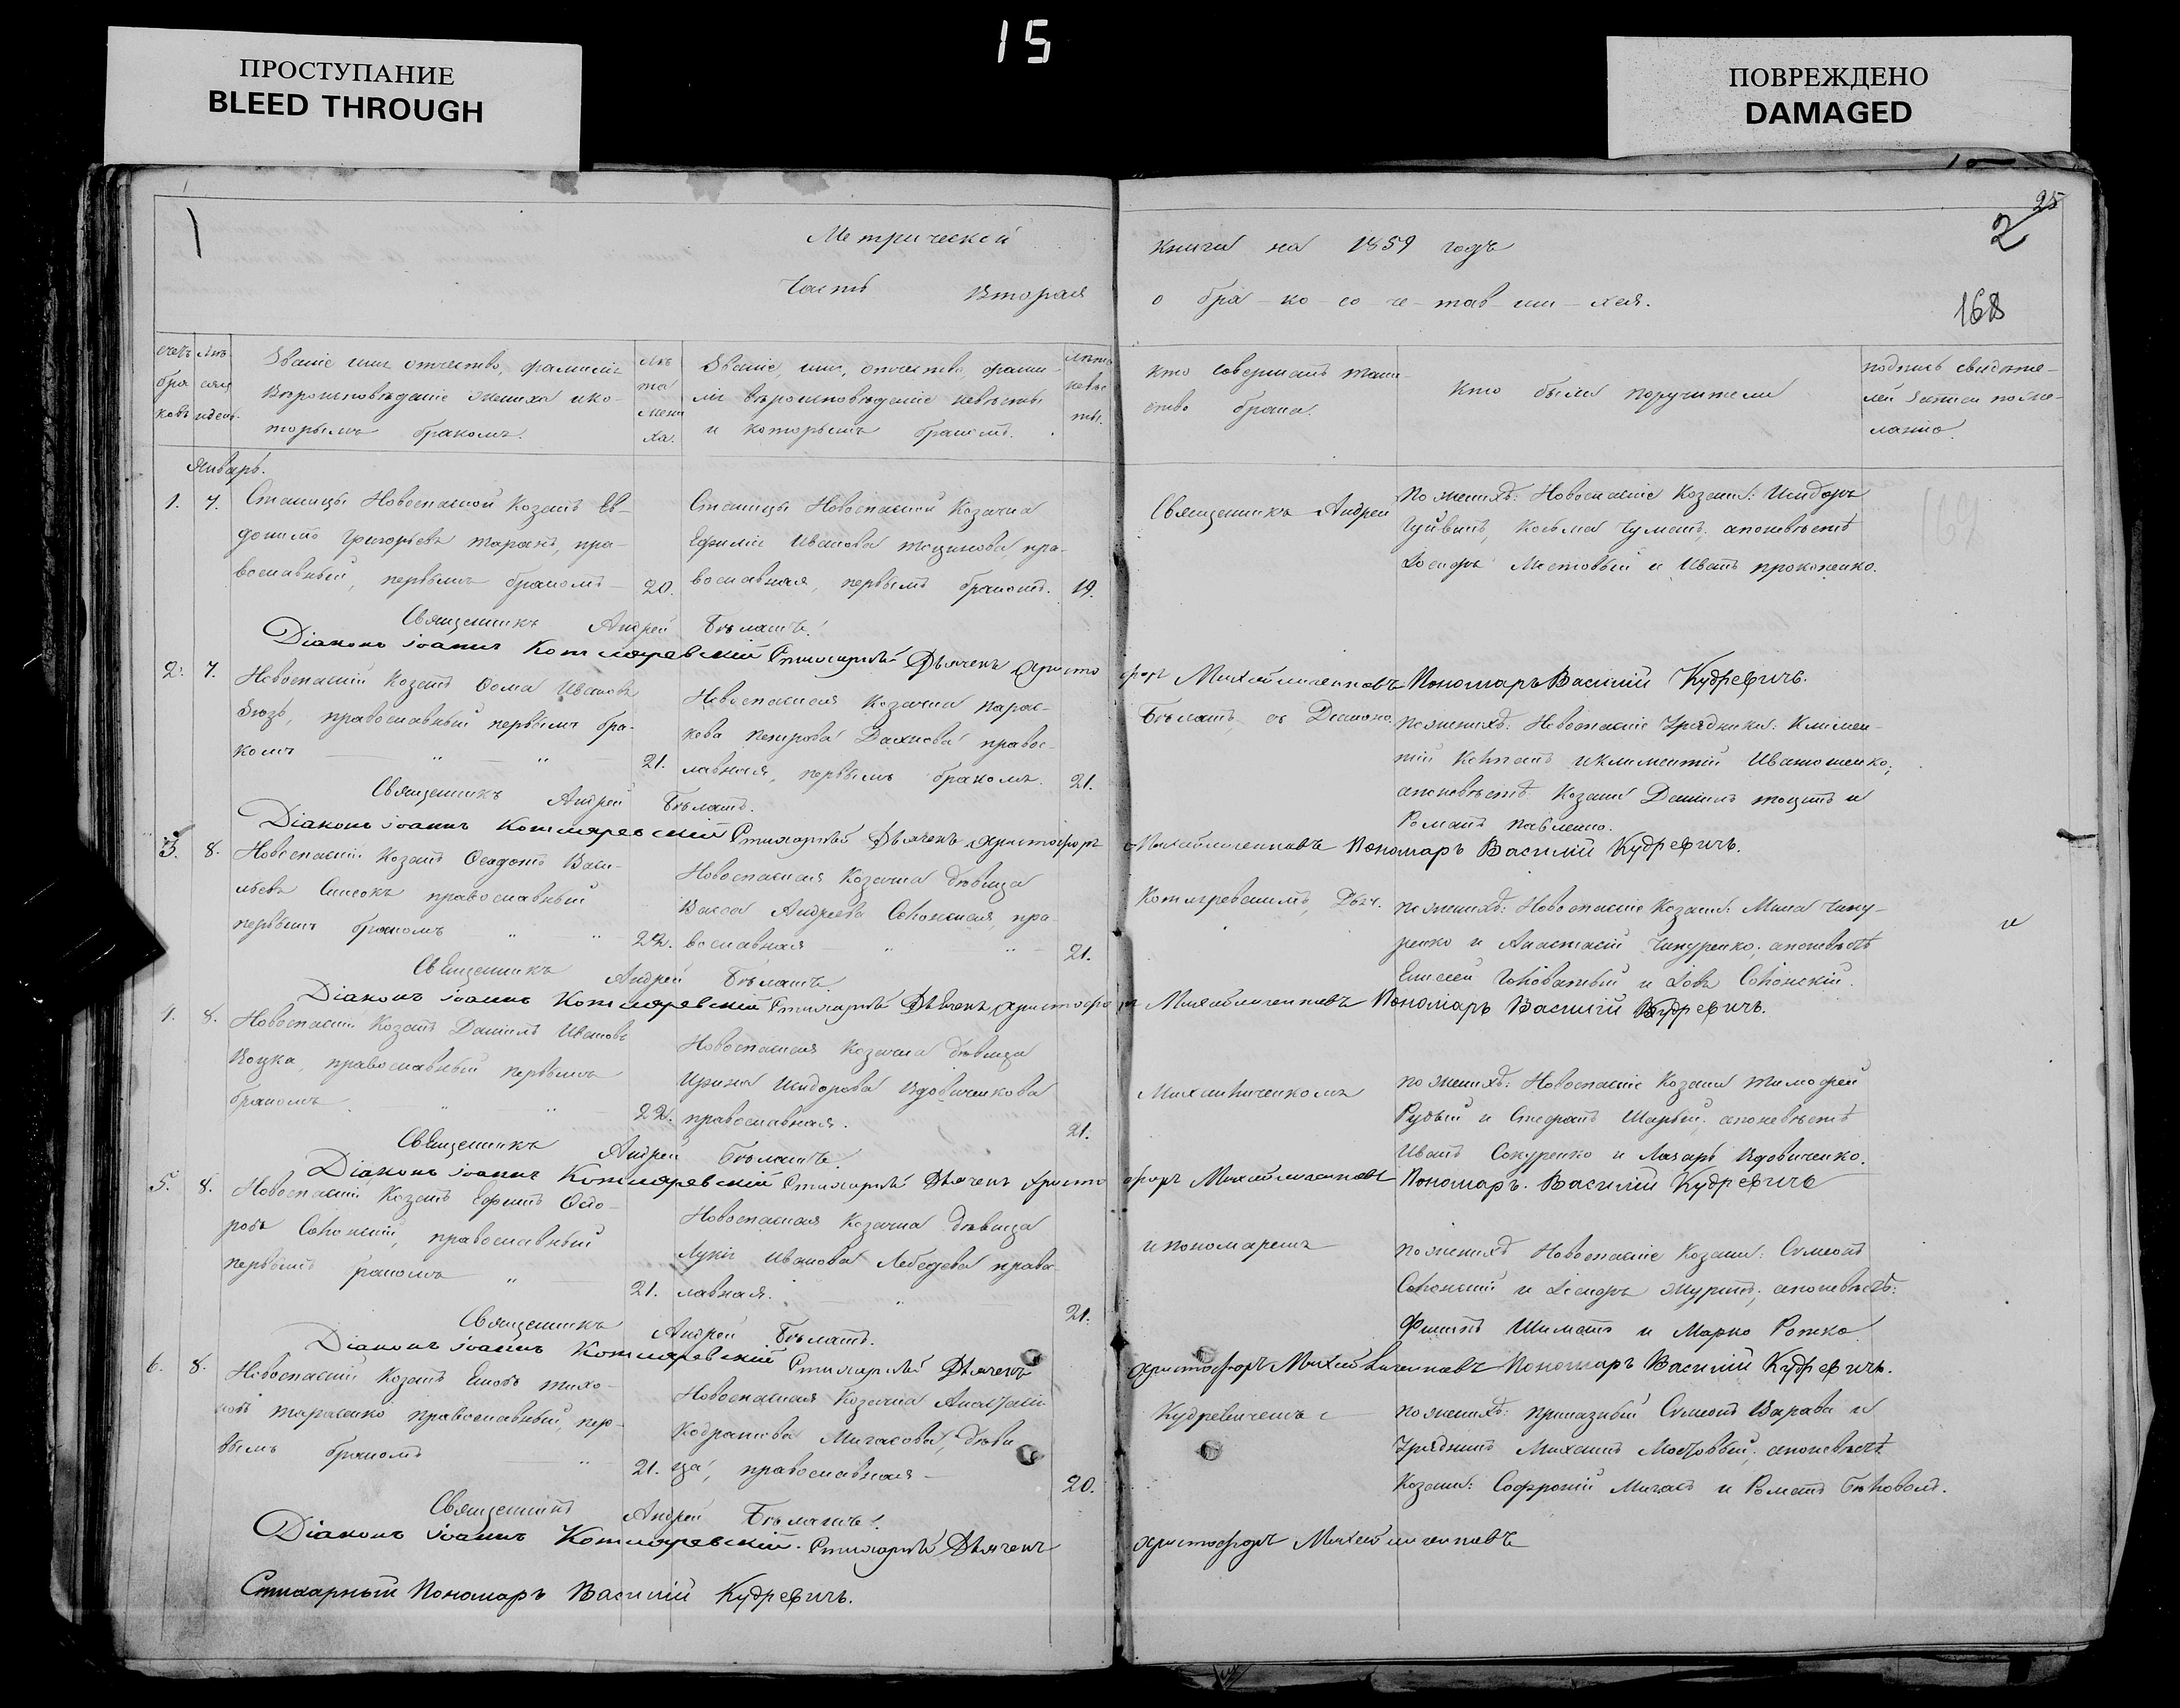 15
ПРОСТУПАНИЕ
BLEED THROUGH
ПОВРЕЖДЕНО
DAMAGED
25
2
168
Метрической книги на 1859 годъ
Часть Вторая о бра-ко-со-че-тав-ши-хся.
счетъ браковъ
Званіе имя отчество, фамилія
Вѣроисповѣданіе жениха и ко-
торымъ бракомъ.
лѣта жениха.
Званіе, имя, отчество, фами-
лія вѣроисповѣданіе невѣсты
и которымъ бракомъ.
лѣта невѣсты.
Кто совершалъ таин-
ство брака.
Кто были поручители
подпись свидѣте-
лей записи по же-
ланію.
Январь.
1. 7. Станицы Новоспаской Козакъ Ев-
докимъ Григорьевъ Таранъ, пра-
вославный, первымъ бракомъ 20.
Станицы Новоспаской Козачка
Евфимія Иванова Тощикова, пра-
вославная, первымъ бракомъ. 19.
Священникъ Андрей
По женихѣ: Новоспаскіе Козаки: Исидоръ
Козьма Чумакъ, а по невѣстѣ
Мостовый и Иванъ Прокопенко.
Священникъ Андрей Бѣлашъ.
Діаконъ Іоаннъ Котляревскій Стихарный Дьячекъ Христофоръ Михайличенковъ Пономарь Василій Кудревичъ.
2. 7. Новоспаскій Козакъ Ѳома Ивановъ
Зюзь, православный первымъ бра-
комъ 21.
Новоспаская Козачка Парас-
кева Петрова Дахнова правос-
лавная, первымъ бракомъ. 21.
Бѣлашъ, съ Діакономъ
По женихѣ: Новоспаскіе Урядники: Климен-
тій и Климентій Иваношенко;
а по невѣстѣ Козаки Даніилъ Тощикъ и
Романъ Павленко.
Священникъ Андрей Бѣлашъ.
Діаконъ Іоаннъ Котляревскій Стихарный Дьячекъ Христофоръ Михайличенковъ Пономарь Василій Кудревичъ.
3. 8. Новоспаскій Козакъ Ѳеодотъ Васи-
льевъ православный
первымъ бракомъ 22.
Новоспаская Козачка дѣвица
Васса Андреева Сохонская, пра-
вославная 21.
Котляревскимъ, Дьяч.
По женихѣ: Новоспаскіе Козаки: Мина Чепу-
ренко и Анастасій Чепуренко; а по невѣстѣ
Елисей и Сохонскій.
Священникъ Андрей Бѣлашъ.
Діаконъ Іоаннъ Котляревскій Стихарный Дьячекъ Христофоръ Михайличенковъ Пономарь Василій Кудревичъ.
4. 8. Новоспаскій Козакъ Даніилъ Ивановъ
Коцка, православный первымъ
бракомъ 22.
Новоспаская Козачка дѣвица
Ирина Исидорова Вдовиченкова
православная. 21.
Михайличенкомъ
По женихѣ: Новоспаскіе Козаки Тимофей
Рудый и Стефанъ Шарый, а по невѣстѣ
Иванъ Сокуренко и Лазарь Вдовиченко.
Священникъ Андрей Бѣлашъ.
Діаконъ Іоаннъ Котляревскій Стихарный Дьячекъ Христофоръ Михайличенковъ Пономарь Василій Кудревичъ
5. 8. Новоспаскій Козакъ Ефимъ Ѳедо-
ровъ Сохонскій, православный
первымъ бракомъ 21.
Новоспаская Козачка дѣвица
Лукія Иванова Лебедева правос-
лавная. 21.
и пономаремъ
По женихѣ Новоспаскіе Козаки: Симеонъ
Сохонскій и а по невѣстѣ:
Филипъ Шиманъ и Марко Рожко.
Священникъ Андрей Бѣлашъ.
Діаконъ Іоаннъ Котляревскій Стихарный Дьячекъ Христофоръ Михайличенковъ Пономарь Василій Кудревичъ.
6. 8. Новоспаскій Козакъ Тихо-
новъ Тарасенко православный, пер-
вымъ бракомъ 21.
Новоспаская Козачка
Кодратова Мигасова, дѣви-
ца, православная 20.
Кудревичемъ
По женихѣ: Приказный Симеонъ Варава и
Урядникъ Михаилъ Мостовый; а по невѣстѣ
Козаки: Софроній Мигасъ и Романъ
Священникъ Андрей Бѣлашъ.
Діаконъ Іоаннъ Котляревскій. Стихарный Дьячекъ Христофоръ Михайличенковъ
Стихарный Пономарь Василій Кудревичъ.